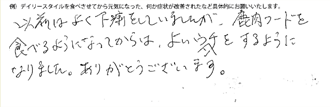 例）デイリースタイルを食べさせてから元気になった、何か症状が改善されたなど具体的にお願いいたします。
以前はよく下痢をしていましたが、鹿肉フードを
食べるようになってからは、よいウンチをするように
なりました。ありがとうございます。